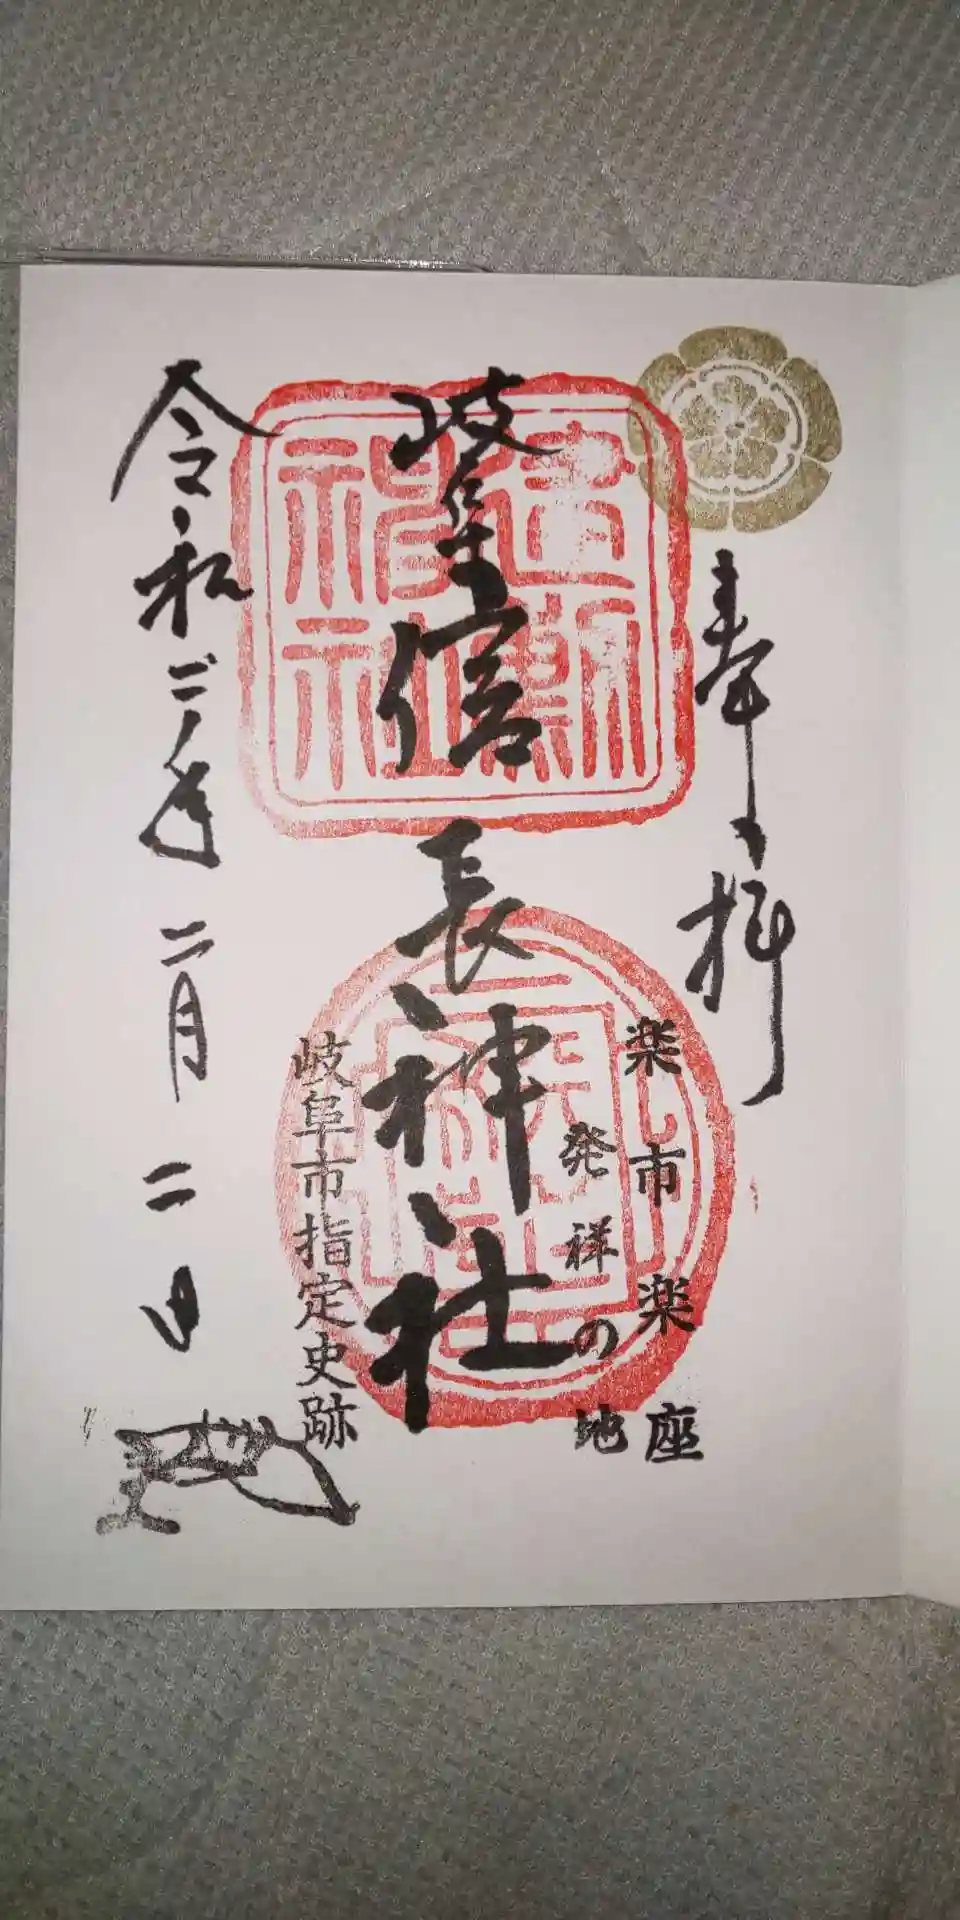 奉拝
楽市楽座
発祥の地
岐阜信長神社
建勲神社
岐阜市指定史跡
令和二年二月二日